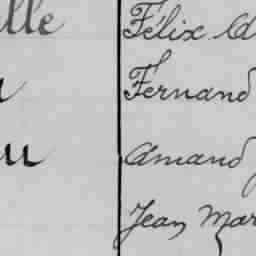 lle Félix
Fernand
u Amand
Jean Mar